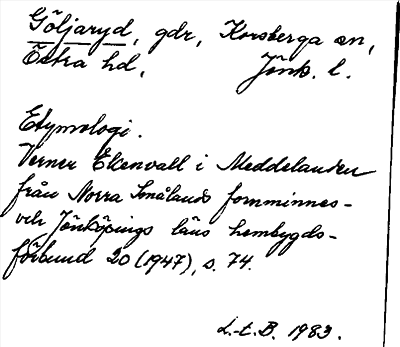 Göljaryd, gdr, Korsberga sn,
Östra hd, Jönk. l.
Etymologi.
Verner Ekenvall i Meddelanden
från Norra Smålands fornminnes-
och Jönköpings läns hembygds-
förbund 20 (1947), s. 74.
L.-E.B. 1983.